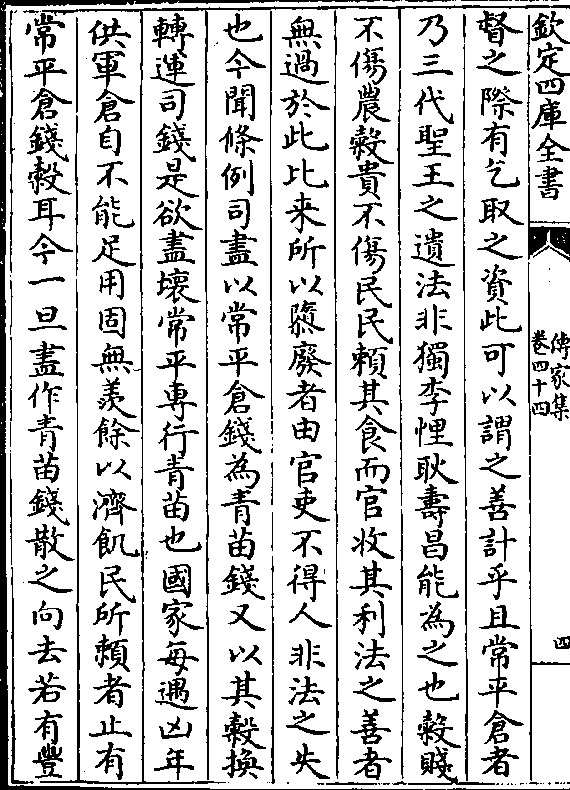 欽定四庫全書
傳家集
卷四十四
四
督之際有乞取之資此可以謂之善計乎且常平倉者
乃三代聖王之遺法非獨李悝耿壽昌能為之也穀賤
不傷農穀貴不傷民民賴其食而官收其利法之善者
無過於此比来所以隳廢者由官吏不得人非法之失
也今聞條例司盡以常平倉錢為青苗錢又以其穀換
轉運司錢是欲盡壞常平專行青苗也國家每遇凶年
供軍倉自不能足用固無羨餘以濟飢民所賴者止有
常平倉錢穀耳今一旦盡作青苗錢散之向去若有豐